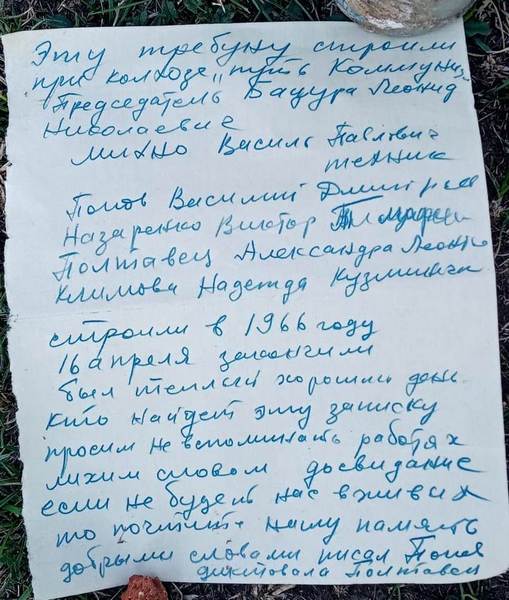 Эту требуну строили
при колхозе „путь Коммуниз-
Председатель Бацура Леонид
Николаевич
михно Василь Павлович
техник
Попов Василий Дмитрие
Назаренко Виктор
Полтавец Александра Леонт
Климова Надежда Кузминич
строили в 1966 году
16 апреля закончили
был теплый хороший день
кто найдет эту записку
просим не вспоминать работях
лихим словом досвидание
если не будет нас вживых
то почтите нашу память
добрыми словами писал Попов
диктовала Полтавец